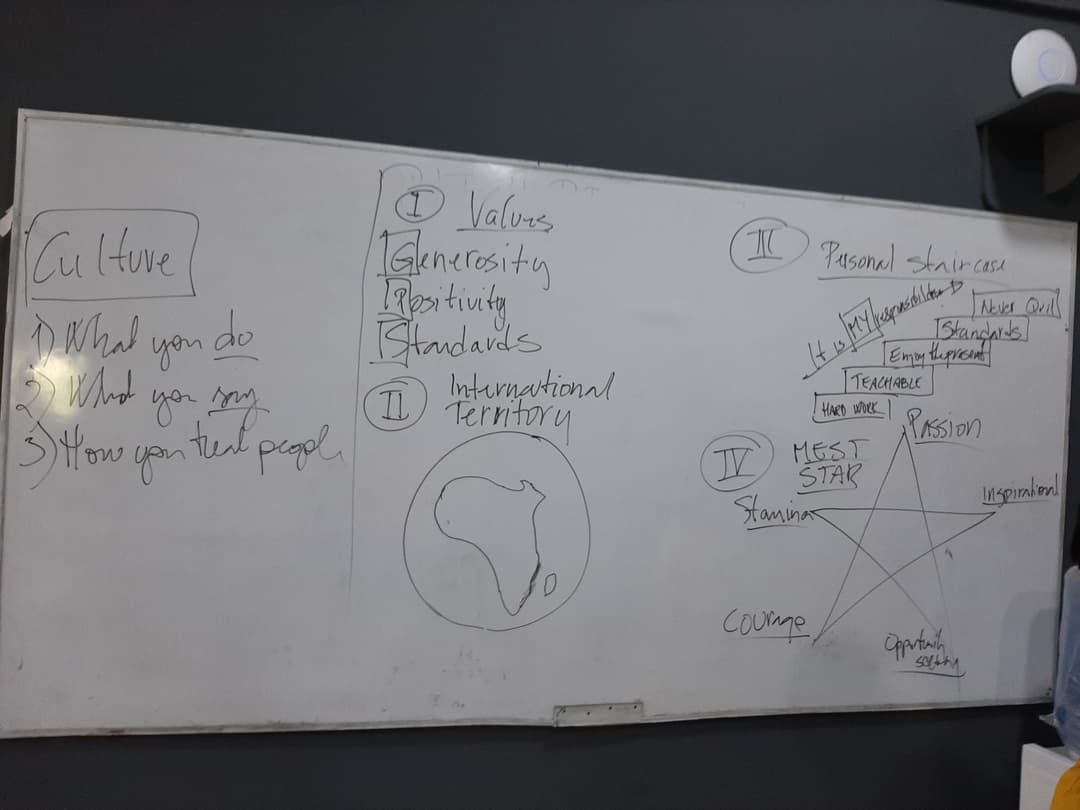 Culture
1) What you do
2) What you say
3) How you treat people
I Values
Generosity
Positivity
Standards
II International
Territory
III Personal Staircase
It is MY responsibility
Never Quit
Standards
Enjoy the present
TEACHABLE
HARD WORK
IV MEST
STAR
Passion
Inspirational
Stamina
Courage
Opportunity